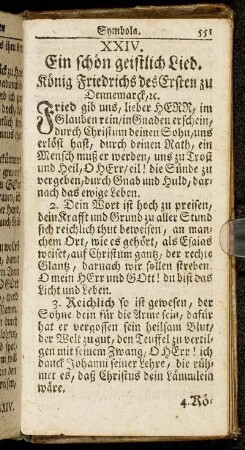 Symbola. 551
XXIV.
Ein schön geistlich Lied.
König Friedrichs des Ersten zu
Dennemarck, ꝛc.
Fried gib uns, lieber HERR, im
Glauben rein, in Gnaden erschein,
durch Christum deinen Sohn, uns
erlöst hast, durch deinen Rath, ein
Mensch muß er werden, uns zu Trost
und Heil, O HErr, eil! die Sünde zu
vergeben, durch Gnad und Huld, dar-
nach das ewige Leben.
2. Dein Wort ist hoch zu preisen,
dein Krafft und Grund zu aller Stund
sich reichlich thut beweisen, an man-
chem Ort, wie es gehört, als Esaias
weiset, auf Christum gantz, der rechte
Glantz, darnach wir sollen streben.
O mein HErr und GOtt! du bist das
Licht und Leben.
3. Reichlich so ist gewesen, der
Sohne dein für die Arme sein, dafür
hat er vergossen sein heilsam Blut,
der Welt zu gut, den Teuffel zu vertil-
gen mit seinem Zwang, O HErr! ich
danck Johanni seiner Lehre, die rüh-
met es, daß Christus dein Lämmlein
wäre.
4. Kö-